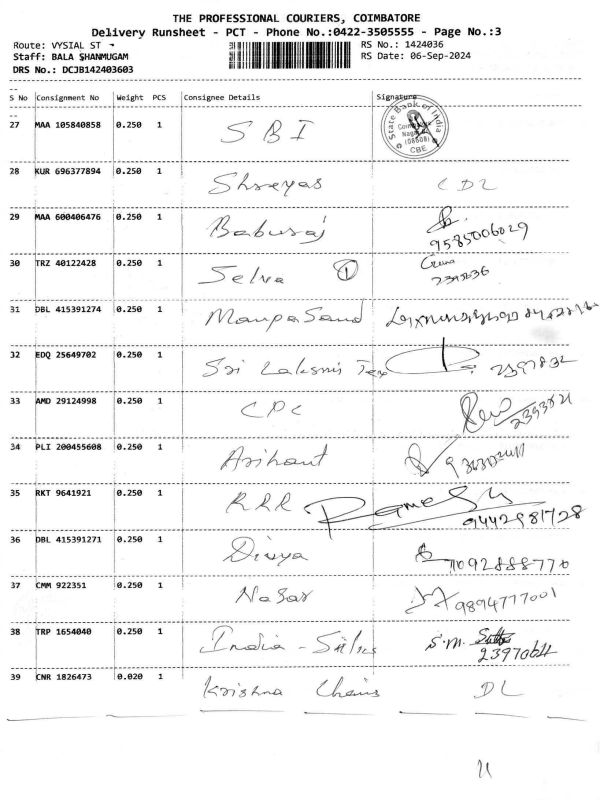 THE PROFESSIONAL COURIERS, COIMBATORE
Delivery Runsheet - PCT - Phone No.:0422-3505555 - Page No.:3
Route: VYSIAL ST RS No.: 1424036
Staff: BALA SHANMUGAM RS Date: 06-Sep-2024
DRS No.: DCJB142403603
S No Consignment No Weight PCS Consignee Details Signature
State Bank of India
(08608)
CBE
27 MAA 105840858 0.250 1 SBI
28 KUR 696377894 0.250 1 Shreyas CDL
29 MAA 600406476 0.250 1 Baburaj
9585006029
30 TRZ 40122428 0.250 1 Selva 1
31 DBL 415391274 0.250 1
32 EDQ 25649702 0.250 1 Sri Laksmi Tex 2397832
33 AMD 29124998 0.250 1 CPC
34 PLI 200455608 0.250 1 Arihant
35 RKT 9641921 0.250 1 RRR Ramesh
9442981728
36 DBL 415391271 0.250 1 Divya
7092888770
37 CMM 922351 0.250 1 Nasar 9894777001
38 TRP 1654040 0.250 1 India - Silks S.M.
39 CNR 1826473 0.020 1 Krishna Chains DL